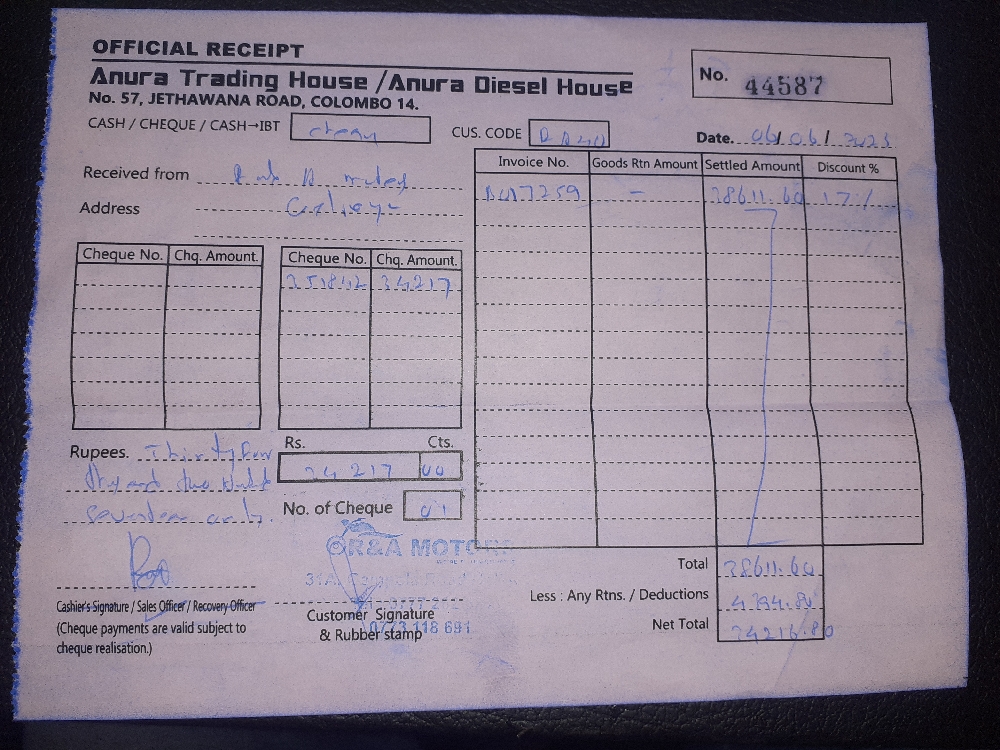 OFFICIAL RECEIPT
Anura Trading House / Anura Diesel House
No. 57, JETHAWANA ROAD, COLOMBO 14.
No. 44587
CASH / CHEQUE / CASH→IBT
CUS. CODE
Date. 06/06/2023
Received from
Address
Invoice No. Goods Rtn Amount Settled Amount Discount %
– 38611.60 17%
Cheque No. Chq. Amount.
Cheque No. Chq. Amount.
351842 34217
Rupees. Thirty four
seventeen only.
Rs. Cts.
34 217 00
No. of Cheque 01
R&A MOTORS
0773 118 691
Total 38611.60
Less : Any Rtns. / Deductions 4394.80
Net Total 34216.80
Cashier's Signature / Sales Officer / Recovery Officer
(Cheque payments are valid subject to
cheque realisation.)
Customer Signature
& Rubber stamp